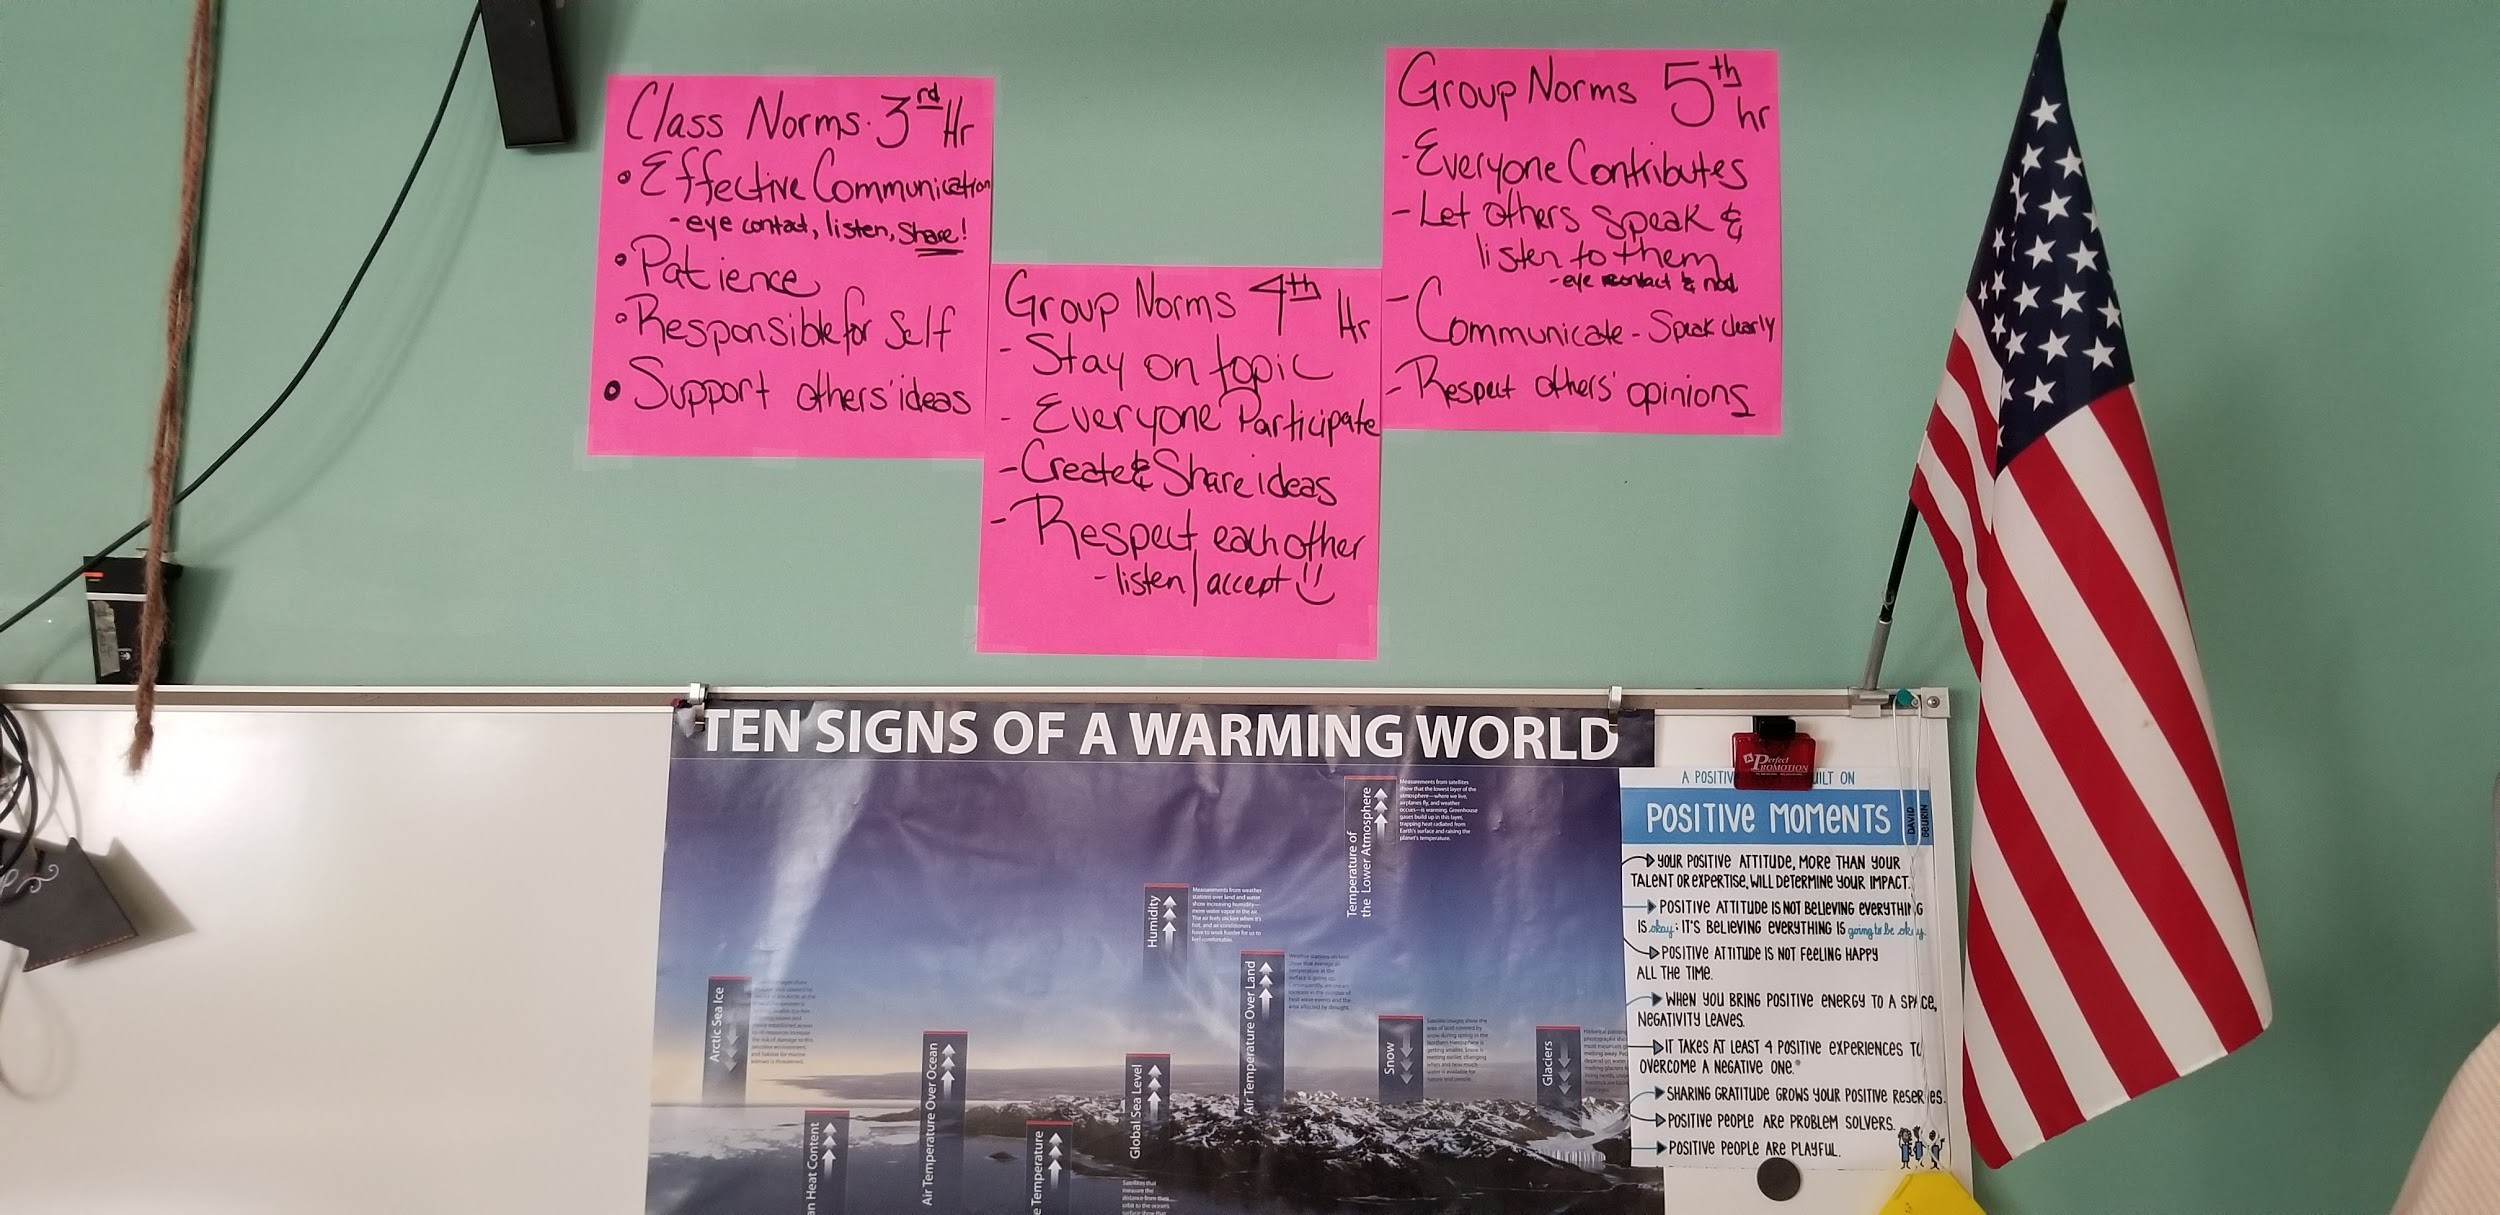 Class Norms. 3rd Hr
• Effective Communication
- eye contact, listen, share!
• Patience
• Responsible for Self
• Support others' ideas
Group Norms 4th Hr
- Stay on topic
- Everyone Participate
- Create & Share ideas
- Respect each other
- listen/accept
Group Norms 5th hr
- Everyone Contributes
- Let others speak &
listen to them
- eye contact & nod
- Communicate - Speak clearly
- Respect others' opinions
TEN SIGNS OF A WARMING WORLD
Temperature of
the Lower Atmosphere
Measurements from satellites
show that the lowest layer of the
atmosphere—where we live,
airplanes fly, and weather
occurs—is warming. Greenhouse
gases build up in this layer,
trapping heat radiated from
Earth's surface and raising the
planet's temperature.
Humidity
Measurements from weather
stations over land and water
show increasing humidity—
more water vapor in the air.
The air feels stickier when it's
hot, and air conditioners
have to work harder for us to
feel comfortable.
Arctic Sea Ice
Air Temperature Over Land
Snow
Glaciers
Air Temperature Over Ocean
Global Sea Level
Heat Content
Temperature
Satellites that
measure the
Perfect
PROMOTION
A POSITIV ILT ON
POSITIVE MOMENTS
DAVID
GEURIN
YOUR POSITIVE ATTITUDE, MORE THAN YOUR
TALENT OR EXPERTISE, WILL DETERMINE YOUR IMPACT.
POSITIVE ATTITUDE IS NOT BELIEVING EVERYTHING
IS okay; IT'S BELIEVING EVERYTHING IS going to be okay.
POSITIVE ATTITUDE IS NOT FEELING HAPPY
ALL THE TIME.
WHEN YOU BRING POSITIVE ENERGY TO A SPACE,
NEGATIVITY LEAVES.
IT TAKES AT LEAST 4 POSITIVE EXPERIENCES TO
OVERCOME A NEGATIVE ONE.*
SHARING GRATITUDE GROWS YOUR POSITIVE RESERVES.
POSITIVE PEOPLE ARE PROBLEM SOLVERS.
POSITIVE PEOPLE ARE PLAYFUL.